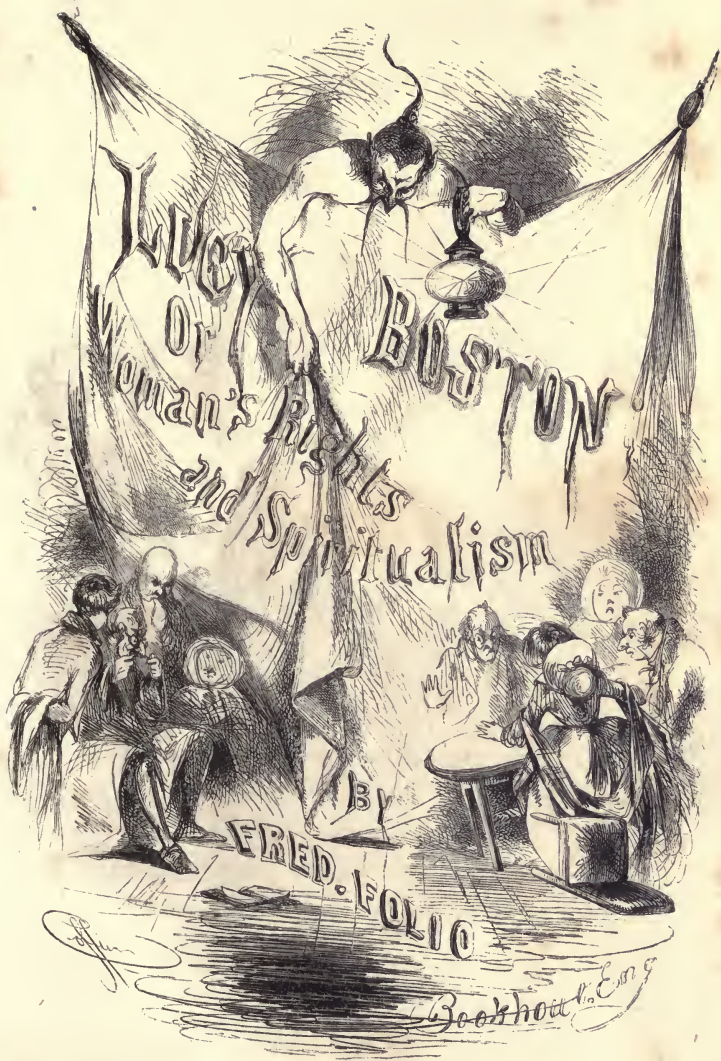 LUCY
BOSTON
Or
Woman's Rights
and Spiritualism
BY
FRED. FOLIO
Bookhout. Eng